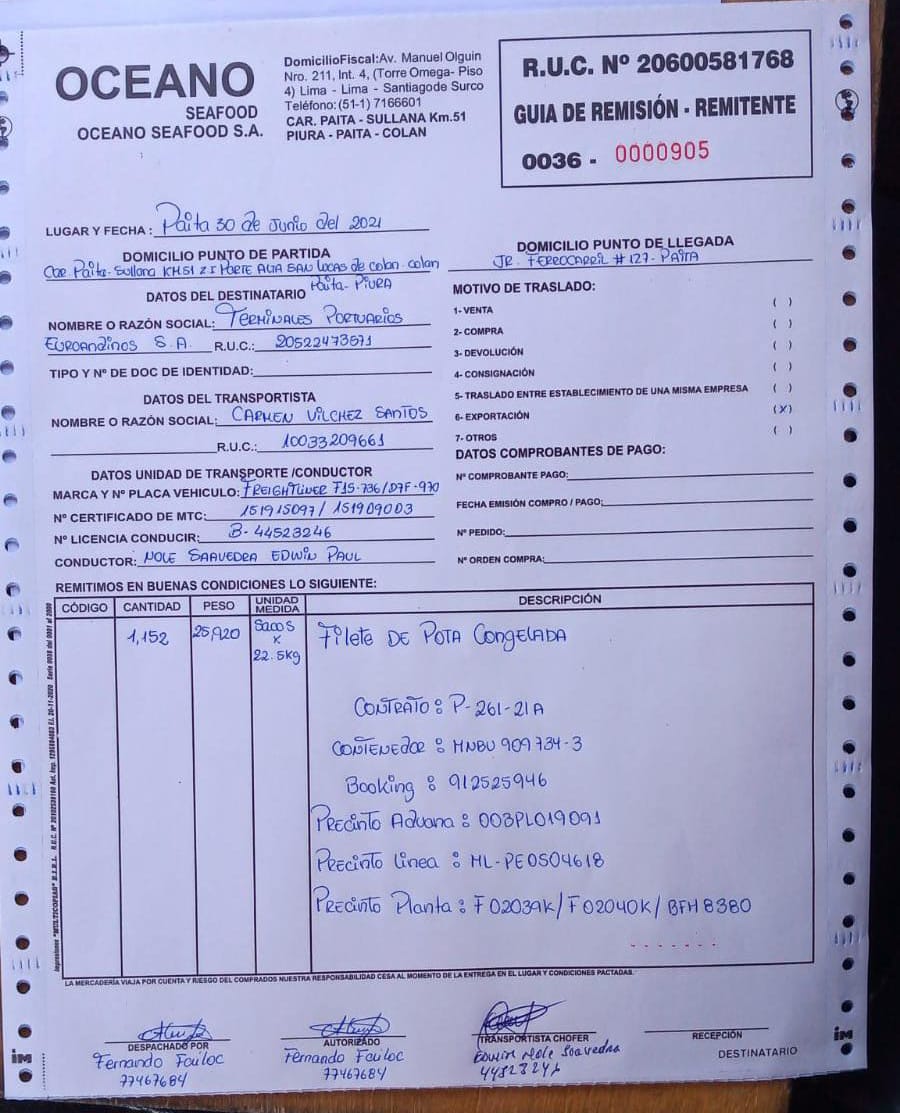 OCEANO
SEAFOOD
OCEANO SEAFOOD S.A.
DomicilioFiscal:Av. Manuel Olguin
Nro. 211, Int. 4, (Torre Omega- Piso
4) Lima - Lima - Santiagode Surco
Teléfono:(51-1) 7166601
CAR. PAITA - SULLANA Km.51
PIURA - PAITA - COLAN
R.U.C. Nº 20600581768
GUIA DE REMISIÓN - REMITENTE
0036 - 0000905
LUGAR Y FECHA : Paita 30 de Junio del 2021
DOMICILIO PUNTO DE PARTIDA
Car Paita- Sullana KM51 Z.I PARTE ALTA SAN Lucas de colan- colan
Paita- PIURA
DOMICILIO PUNTO DE LLEGADA
JR. FERROCARRIL # 127- PAITA
DATOS DEL DESTINATARIO
NOMBRE O RAZÓN SOCIAL: TERMINALES PORTUARIOS
EUROANDINOS S.A. R.U.C.: 20522473571
TIPO Y Nº DE DOC DE IDENTIDAD:
DATOS DEL TRANSPORTISTA
NOMBRE O RAZÓN SOCIAL: CARMEN VILCHEZ SANTOS
R.U.C.: 10033209661
DATOS UNIDAD DE TRANSPORTE /CONDUCTOR
MARCA Y Nº PLACA VEHICULO: FREIGHTLINER F1S-736/D7F-970
Nº CERTIFICADO DE MTC: 151915097/ 151909003
Nº LICENCIA CONDUCIR: B- 44523246
CONDUCTOR: NOLE SAAVEDRA EDWIN PAUL
MOTIVO DE TRASLADO:
1- VENTA ( )
2- COMPRA ( )
3- DEVOLUCIÓN ( )
4- CONSIGNACIÓN ( )
5- TRASLADO ENTRE ESTABLECIMIENTO DE UNA MISMA EMPRESA ( )
6- EXPORTACIÓN (X)
7- OTROS ( )
DATOS COMPROBANTES DE PAGO:
Nº COMPROBANTE PAGO:
FECHA EMISIÓN COMPRO / PAGO:
Nº PEDIDO:
Nº ORDEN COMPRA:
REMITIMOS EN BUENAS CONDICIONES LO SIGUIENTE:
CÓDIGO CANTIDAD PESO UNIDAD MEDIDA DESCRIPCIÓN
1,152 25,920 Sacos x 22.5kg Filete DE POTA CONGELADA
CONTRATO : P- 261-21A
CONTENEDOR : MNBU 909734-3
Booking : 912525946
Precinto Aduana : 003PL019091
Precinto Linea : ML-PE0504618
Precinto Planta : F02039K/ F02040K/ BFH8380
LA MERCADERÍA VIAJA POR CUENTA Y RIESGO DEL COMPRADOS NUESTRA RESPONSABILIDAD CESA AL MOMENTO DE LA ENTREGA EN EL LUGAR Y CONDICIONES PACTADAS.
DESPACHADO POR
Fernando Failoc
77467684
AUTORIZADO
Fernando Failoc
77467684
TRANSPORTISTA CHOFER
Edwin Nole Saavedra
RECEPCIÓN
DESTINATARIO
im
im